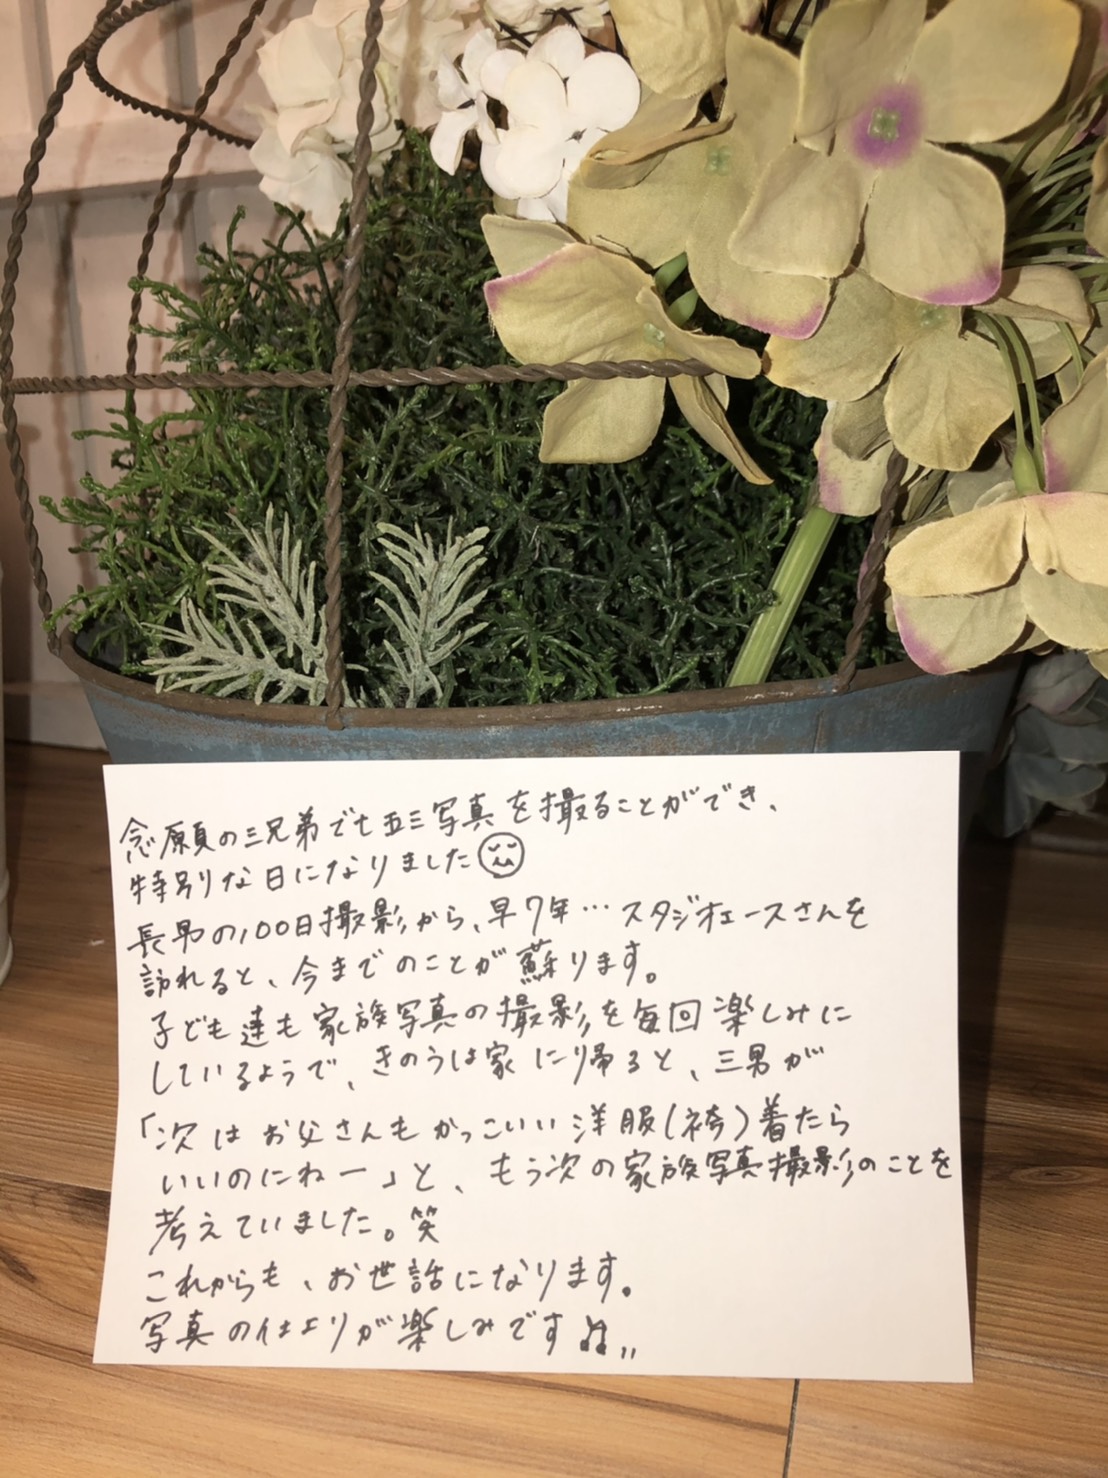 念願の三兄弟で七五三写真を撮ることができ、
特別な日になりました
長男の100日撮影から、早7年… スタジオエースさんを
訪れると、今までのことが蘇ります。
子ども達も家族写真の撮影を毎回楽しみに
しているようで、きのうは家に帰ると、三男が
「次はお父さんもかっこいい洋服(袴)着たら
いいのにねー」と、もう次の家族写真撮影のことを
考えていました。笑
これからも、お世話になります。
写真の仕上りが楽しみです